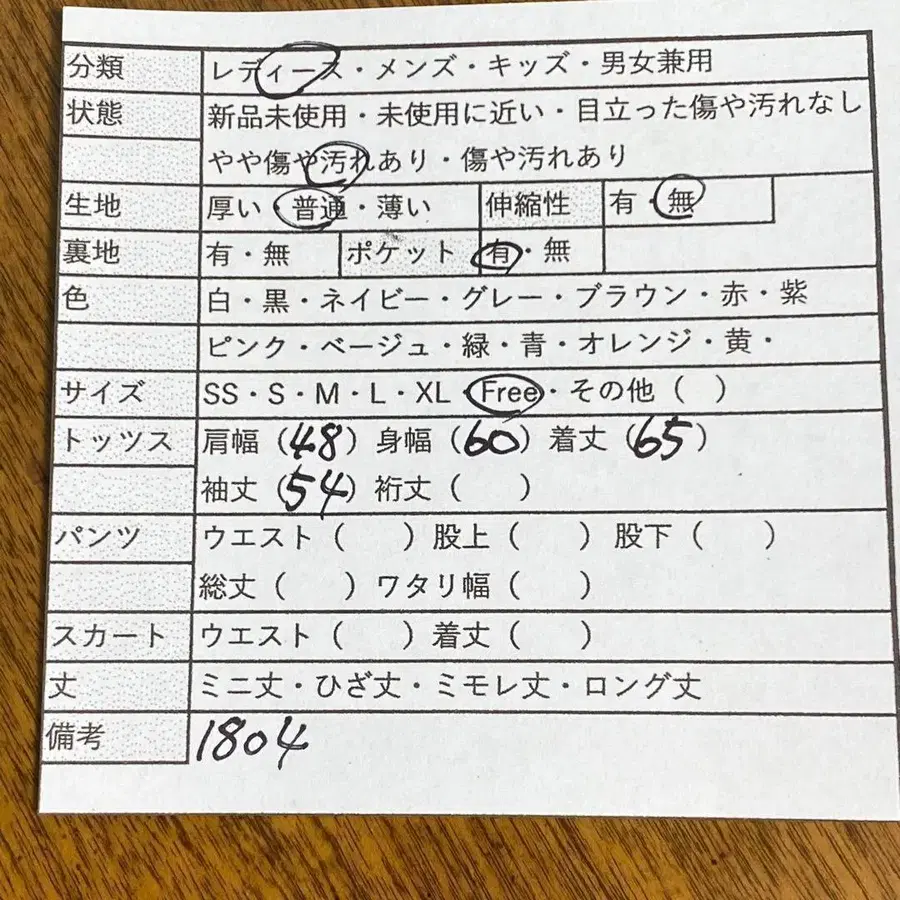 分類 レディース・メンズ・キッズ・男女兼用
状態 新品未使用・未使用に近い・目立った傷や汚れなし
やや傷や汚れあり・傷や汚れあり
生地 厚い・普通・薄い 伸縮性 有・無
裏地 有・無 ポケット 有・無
色 白・黒・ネイビー・グレー・ブラウン・赤・紫
ピンク・ベージュ・緑・青・オレンジ・黄・
サイズ SS・S・M・L・XL・Free・その他（ ）
トッツス 肩幅（48）身幅（60）着丈（65）
袖丈（54）裄丈（ ）
パンツ ウエスト（ ）股上（ ）股下（ ）
総丈（ ）ワタリ幅（ ）
スカート ウエスト（ ）着丈（ ）
丈 ミニ丈・ひざ丈・ミモレ丈・ロング丈
備考 1804